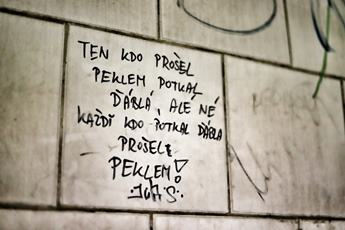 TEN KDO PROŠEL
PEKLEM POTKAL
ĎÁBLÁ, ALE NÉ
KAŽDÍ KDO POTKAL ĎÁBLA
PROŠEL
PEKLEM!